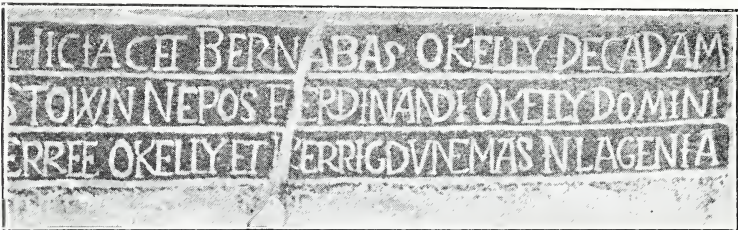 HIC IACET BERNABAS OKELLY DE CADAM
STOWN NEPOS FERDINANDI OKELLY DOMINI
ERREE OKELLY ET KERRIGDVNEMAS N LAGENIA